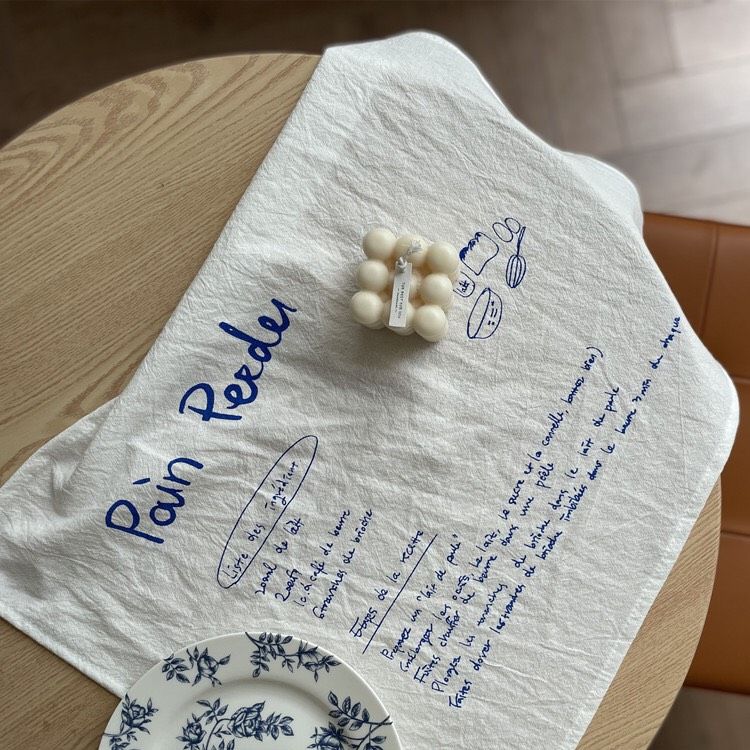 Pain Perdu
Liste des ingrédient
200ml de lait
2 oeufs
1c à café de beurre
6 tranches de brioche
Etapes de la recette
Préparez un "lait de poule"
(mélanger les oeufs, le lait, le sucre et la cannelle, battez bien)
Faites chauffer du beurre dans une poêle
Plongez les tranches de brioche dans le lait de poule
Faites dorer les tranches de brioche imbibées dans le beurre 3 min de chaque
lait